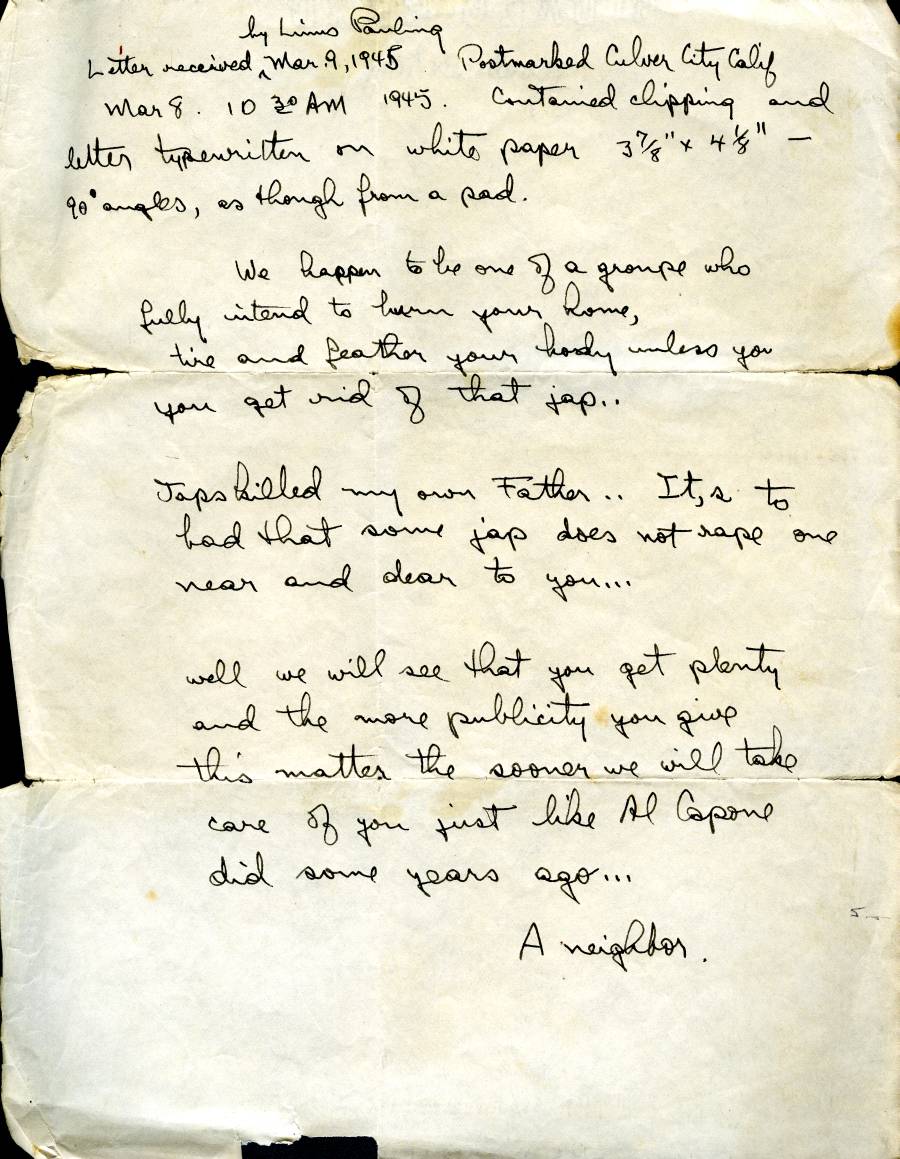 by Linus Pauling
Letter received ^ Mar. 9, 1945 Postmarked Culver City Calif
Mar 8. 10 30 AM 1945. Contained clipping and
letter typewritten on white paper 3 7/8" x 4 1/8" —
90° angles, as though from a pad.
We happen to be one of a groupe who
fully intend to burn your home,
tire and feather your body unless you
you get rid of that jap..
Japs killed my own Father.. It,s to
bad that some jap does not rape one
near and dear to you...
well we will see that you get plenty
and the more publicity you give
this matter the sooner we will take
care of you just like Al Capone
did some years ago...
A neighbor.